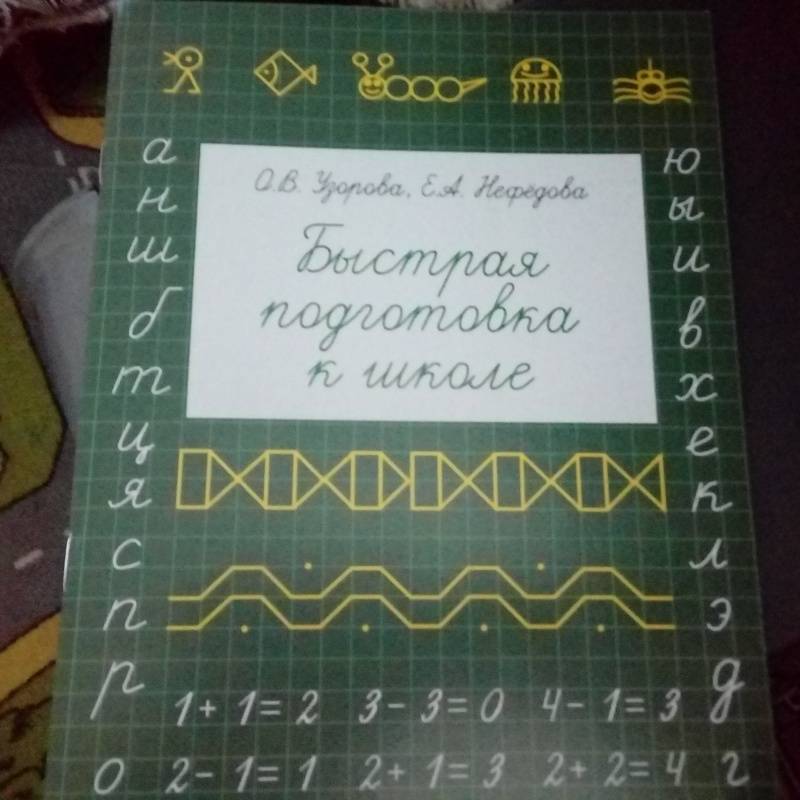 а
н
ш
б
т
ц
я
с
п
р
о
О.В. Узорова, Е.А. Нефёдова
Быстрая
подготовка
к школе
ю
ы
и
в
х
е
к
л
э
д
г
1+ 1= 2 3- 3= 0 4- 1= 3
2- 1= 1 2+ 1= 3 2+ 2= 4